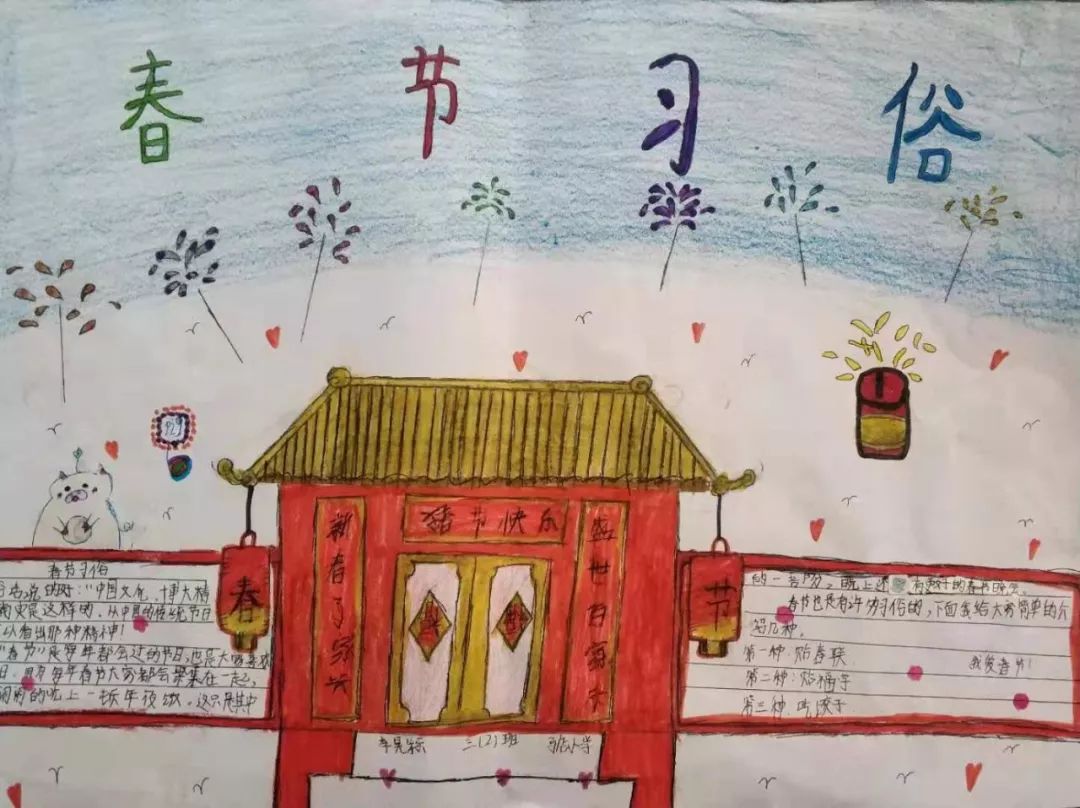 春节习俗
春节快乐
新春了家兴
盛世百家
春
节
春节习俗
名说的好："中国文化,博大精
史是这样的,从中国的传统节日
以看出那种精神!
"春节"是每年都会过的节日,也是大家喜欢
每年春节大家都会聚集在一起,
的吃上一顿年夜饭。这只是其中
的一部分,晚上还有更好的春节晚会
春节也是有许多习俗的,下面我给大家简单的介
绍几种。
第一种:贴春联
第二种:贴福字
第三种:吃饺子
我爱春节!
三(2)班
小学